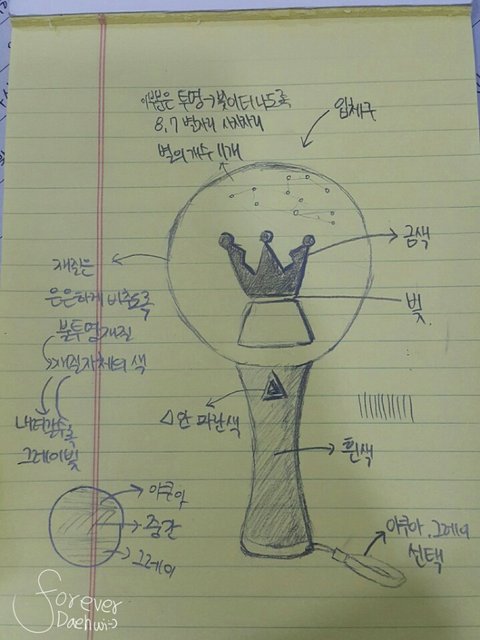 이부분은 투명→빛이 더 나도록
8.7 별자리 사자자리
별의 개수 11개
입체구
금색
재질은
은은하게 비추도록
불투명재질
재질자체의 색
빛
내려갈수록
그레이빛
△안 파란색
흰색
아쿠아
중간
그레이
아쿠아, 그레이
선택
forever
Daehwi